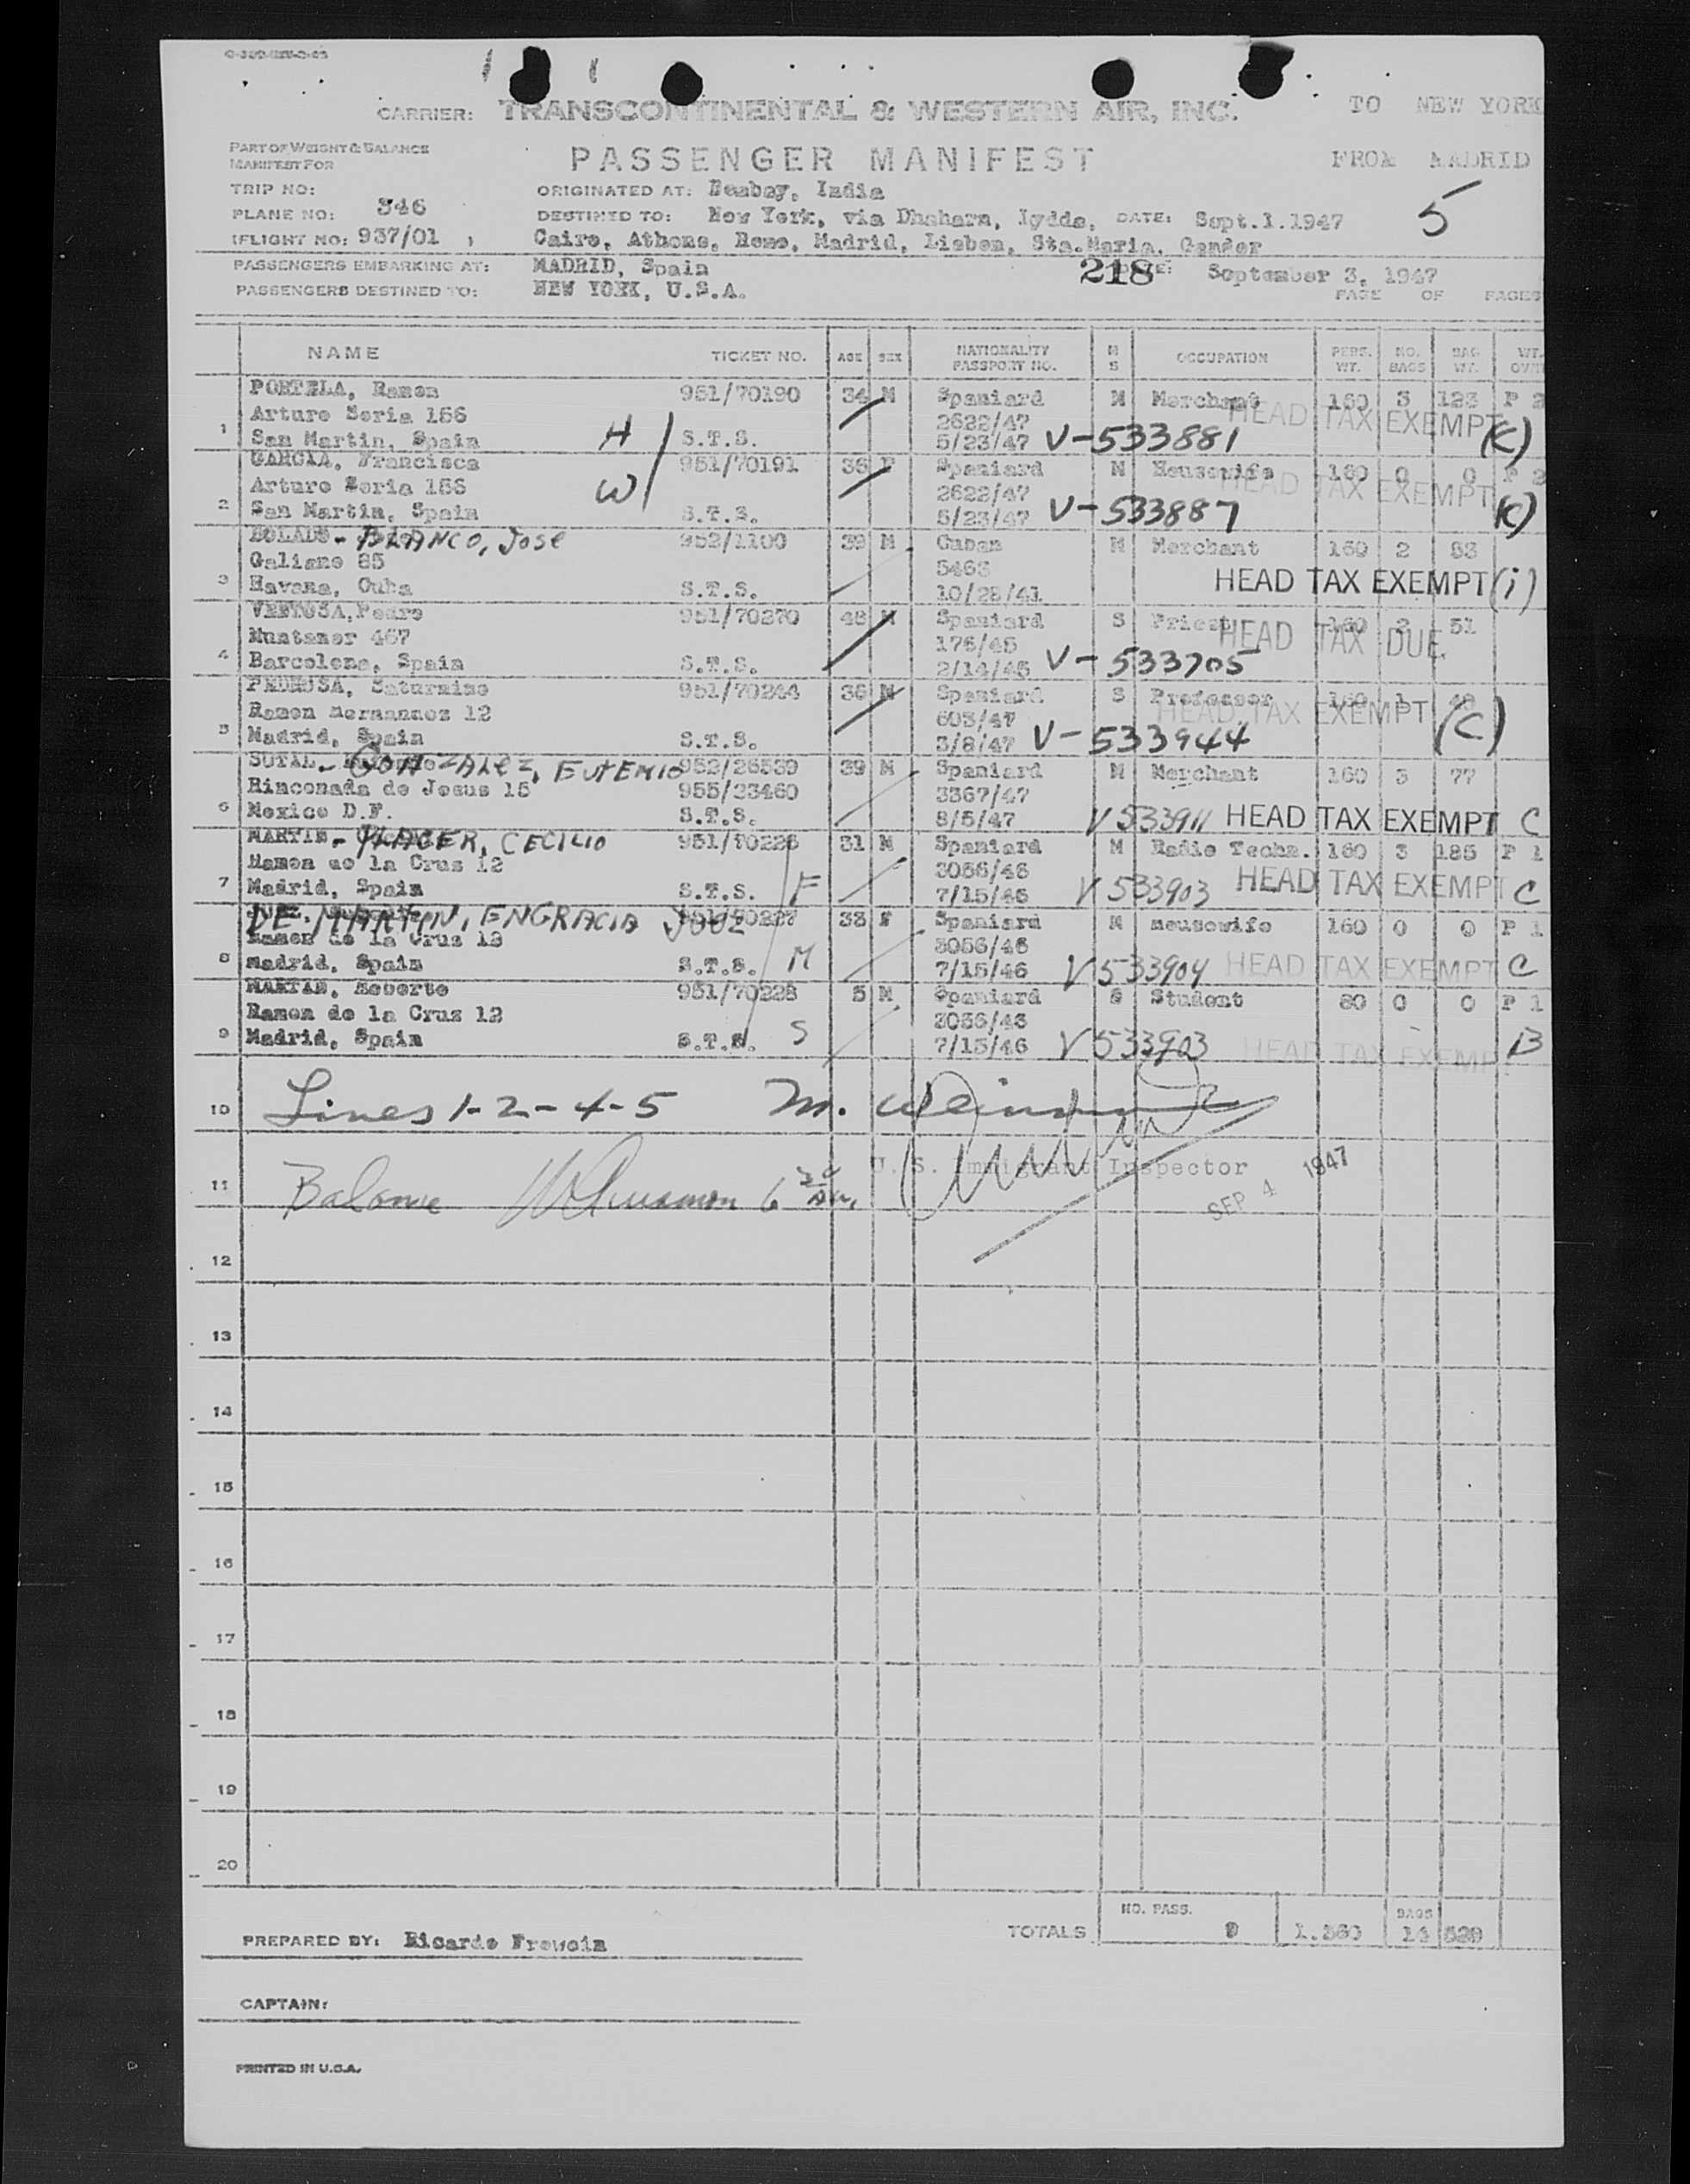 CARRIER: TRANSCONTINENTAL & WESTERN AIR, INC. TO NEW YORK
PART OF WEIGHT & BALANCE
MANIFEST FOR
PASSENGER MANIFEST FROM MADRID
TRIP NO: ORIGINATED AT: Bombay, India
PLANE NO: 346 DESTINED TO: New York, via Dhaharn, Lydda, DATE: Sept.1.1947 5
FLIGHT NO: 937/01 Cairo, Athens, Rome, Madrid, Lisbon, Sta.Maria, Gander
PASSENGERS EMBARKING AT: MADRID, Spain 218 September 3, 1947
PASSENGERS DESTINED TO: NEW YORK, U.S.A. PAGE OF PAGES
NAME TICKET NO. AGE SEX NATIONALITY PASSPORT NO. M S OCCUPATION PERS. WT. NO. BAGS BAG WT. WT. OVER
PORTELA, Ramon 951/70190 34 M Spaniard M Merchant 160 3 123 P 2
Arturo Soria 156 2622/47 HEAD TAX EXEMPT
1 San Martin, Spain H S.T.S. 5/23/47 V-533881 (C)
GARCIA, Francisca 951/70191 36 F Spaniard M Housewife 160 0 0 P 2
Arturo Soria 156 W 2622/47 HEAD TAX EXEMPT
2 San Martin, Spain S.T.S. 5/23/47 V-533887 (C)
BOLADO - BLANCO, José 952/1100 39 M Cuban M Merchant 160 2 83
Galiano 85 5463
3 Havana, Cuba S.T.S. 10/28/41 HEAD TAX EXEMPT (i)
VENTOSA, Pedro 951/70270 48 M Spaniard S Priest 160 2 51
Muntaner 467 176/45 HEAD TAX DUE
4 Barcelona, Spain S.T.S. 2/14/45 V-533705
PEDROSA, Saturnino 951/70244 36 M Spaniard S Professor 160 1
Ramon Hernandez 12 603/47 HEAD TAX EXEMPT (C)
5 Madrid, Spain S.T.S. 3/8/47 V-533944
- GONZALEZ, EUTEMIO 952/26539 39 M Spaniard M Merchant 160 3 77
Rinconada de Jesus 15 955/23460 3367/47
6 Mexico D.F. S.T.S. 8/5/47 V 533911 HEAD TAX EXEMPT C
MARTIN - PLAGER, CECILIO 951/70226 31 M Spaniard M Radio Techn. 160 3 185 P 1
Ramon de la Cruz 12 3056/46
7 Madrid, Spain S.T.S. F 7/15/46 V 533903 HEAD TAX EXEMPT C
DE MARTIN, ENGRACIA 951/70227 33 F Spaniard M Housewife 160 0 0 P 1
Ramon de la Cruz 12 3056/46
8 Madrid, Spain S.T.S. M 7/15/46 V 533904 HEAD TAX EXEMPT C
MARTIN, Roberto 951/70228 5 M Spaniard S Student 80 0 0 P 1
Ramon de la Cruz 12 3056/46
9 Madrid, Spain S.T.S. S 7/15/46 V 533903 HEAD TAX EXEMPT B
10 Lines 1-2-4-5 M.
U. S. Immigrant Inspector SEP 4 1947
11 Balance
12
13
14
15
16
17
18
19
20
TOTALS NO. PASS. 9 1.360 BAGS 14
PREPARED BY: Ricardo
CAPTAIN:
PRINTED IN U.S.A.